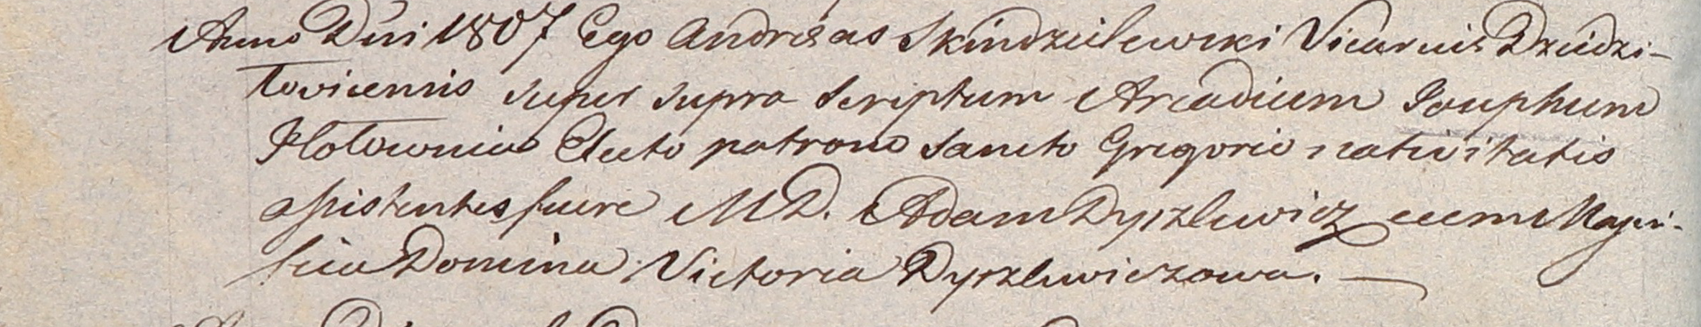 Anno Dni 1807 Ego Andreas Skindzielewski Vicarius Dziedzi-
lovicensis super supra scriptum Arcadium Josephum
Hołownia Electo patrono Sancto Gregorio nativitatis
assistentes fuere M D. Adam Dyszlewicz cum Magni-
fica Domina Victoria Dyszlewiczowa. —